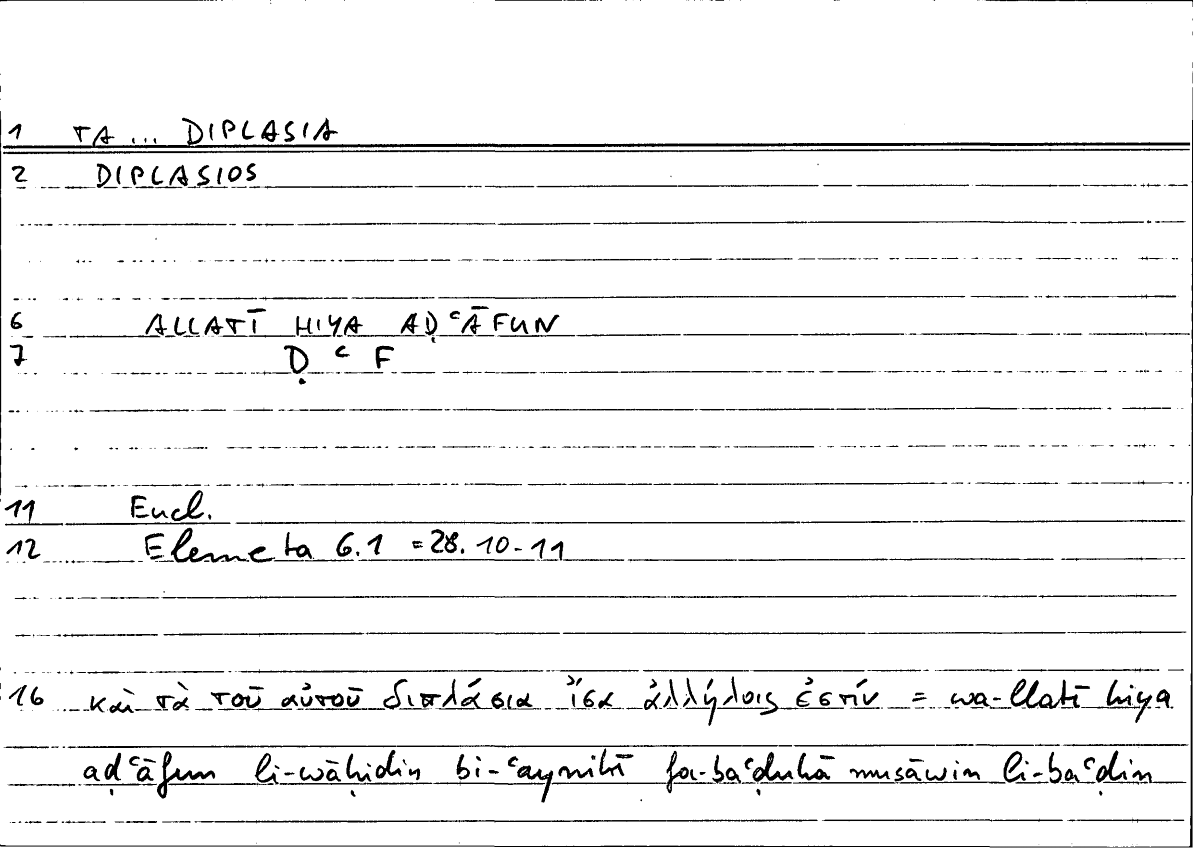 1 TA ... DIPLASIA
2 DIPLASIOS
6 ALLATĪ HIYA AḌʿĀFUN
7 Ḍ ʿ F
11 Eucl.
12 Elemeta 6.1 = 28. 10-11
16 καὶ τὰ τοῦ αὐτοῦ διπλάσια ἴσα ἀλλήλοις ἐστίν = wa-llatī hiya
aḍʿāfun li-wāḥidin bi-ʿaynihī fa-baʿḍuhā musāwin li-baʿḍin